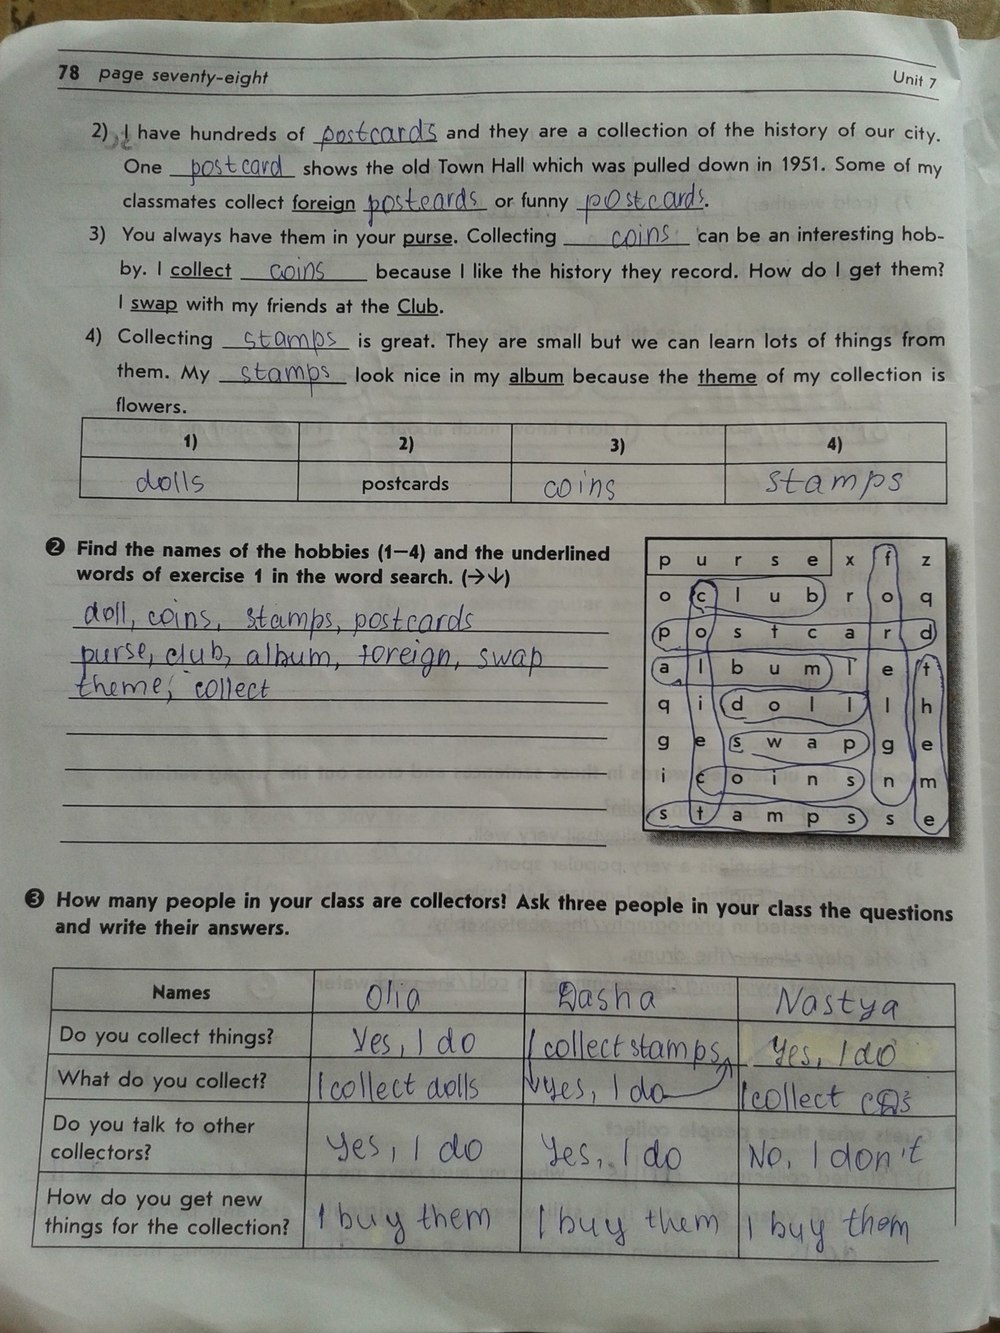 78 page seventy-eight
Unit 7
2) I have hundreds of postcards and they are a collection of the history of our city.
One postcard shows the old Town Hall which was pulled down in 1951. Some of my
classmates collect foreign postcards or funny postcards.
3) You always have them in your purse. Collecting coins can be an interesting hob-
by. I collect coins because I like the history they record. How do I get them?
I swap with my friends at the Club.
4) Collecting stamps is great. They are small but we can learn lots of things from
them. My stamps look nice in my album because the theme of my collection is
flowers.
1) 2) 3) 4)
dolls postcards coins stamps
2 Find the names of the hobbies (1–4) and the underlined
words of exercise 1 in the word search. (→↓)
doll, coins, stamps, postcards
purse, club, album, foreign, swap
theme, collect
p u r s e x f z
o c l u b r o q
p o s t c a r d
a l b u m l e t
q i d o l l l h
g e s w a p g e
i c o i n s n m
s t a m p s s e
3 How many people in your class are collectors? Ask three people in your class the questions
and write their answers.
Names Olia Dasha Nastya
Do you collect things? Yes, I do I collect stamps Yes, I do
What do you collect? I collect dolls Yes, I do I collect CDs
Do you talk to other
collectors? Yes, I do Yes, I do No, I don't
How do you get new
things for the collection? I buy them I buy them I buy them